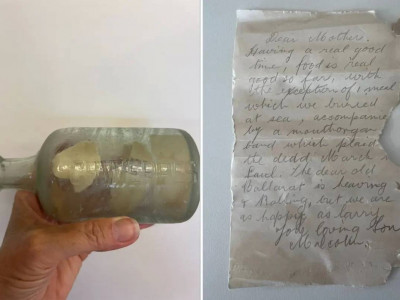 Dear Mother,
Having a real good
time, food is real
good so far, with
the exception of 1 meal
which we buried
at sea, accompanied
by a mouthorgan
band which
the dead March
The dear old
Ballarat is heaving
& Rolling, but we are
as happy as larry,
Your loving Son
Malcolm.